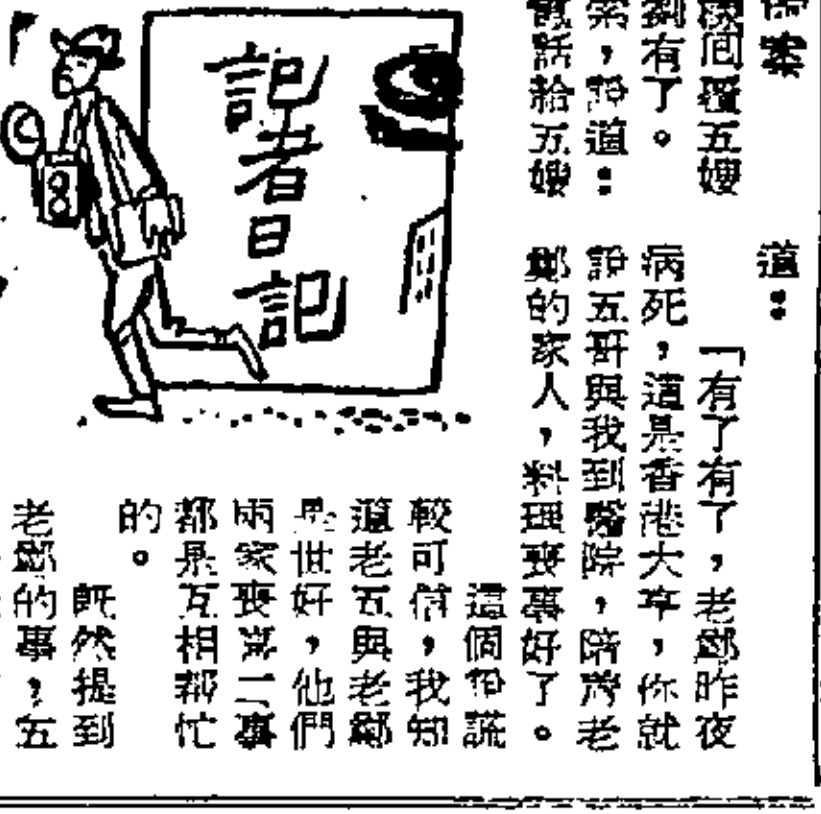 案
回覆五嫂
有了。
，說道：
電話給五嫂
道：
「有了有了，老鄭昨夜
病死，這是香港大亨，你就
說五哥與我到醫院，陪着老
鄭的家人，料理喪事好了。
這個說謊
較可信，我知
道老五與老鄭
是世好，他們
兩家喪喜二事
都是互相幫忙
的。
既然提到
老鄭的事，五
記者日記